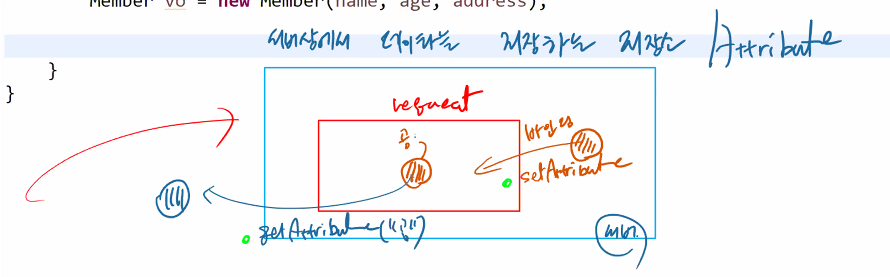 Member vo = new Member(name, age, address);
서버상에서 데이터를 저장하는 저장소 Attribute
}
}
request
공.
바인딩
setAttribute
getAttribute("공")
서버.